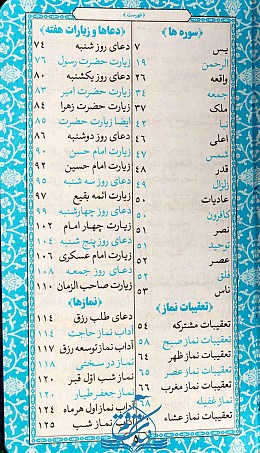 ﴿فهرست﴾
﴿سوره ها﴾
یس ۷
الرحمن ۱۹
واقعه ۲۶
جمعه ۳۴
ملک ۳۷
نبا ۴۲
اعلی ۴۶
شمس ۴۷
قدر ۴۸
زلزال ۴۹
عادیات ۵۰
کافرون ۵۰
نصر ۵۱
توحید ۵۱
عصر ۵۲
فلق ۵۲
ناس ۵۳
﴿تعقیبات نماز﴾
تعقیبات مشترکه ۵۴
تعقیبات نماز صبح ۵۸
تعقیبات نماز ظهر ۶۴
تعقیبات نماز عصر ۶۵
تعقیبات نماز مغرب ۶۶
نماز غفیله ۶۸
تعقیبات نماز عشاء
﴿دعاها و زیارات هفته﴾
دعای روز شنبه ۷۴
زیارت حضرت رسول ۷۶
دعای روز یکشنبه ۸۰
زیارت حضرت امیر ۸۳
زیارت حضرت زهرا ۸۴
ایضا زیارت حضرت ۸۵
دعای روز دوشنبه ۸۶
زیارت امام حسن ۹۰
زیارت امام حسین ۹۲
دعای روز سه شنبه ۹۵
زیارت ائمه بقیع ۹۷
دعای روز چهارشنبه ۹۹
زیارت چهار امام ۱۰۲
دعای روز پنج شنبه ۱۰۴
زیارت امام عسکری ۱۰۶
دعای روز جمعه ۱۰۸
زیارت صاحب الزمان ۱۱۰
﴿نمازها﴾
دعای طلب رزق ۱۱۴
آداب نماز حاجت ۱۱۴
آداب نماز توسعه رزق ۱۱۷
نماز در سختی ۱۱۸
نماز شب اوّل قبر ۱۲۰
نماز جعفر طیار ۱۲۰
آداب نماز اول هرماه ۱۲۴
آداب نماز شب ۱۲۵